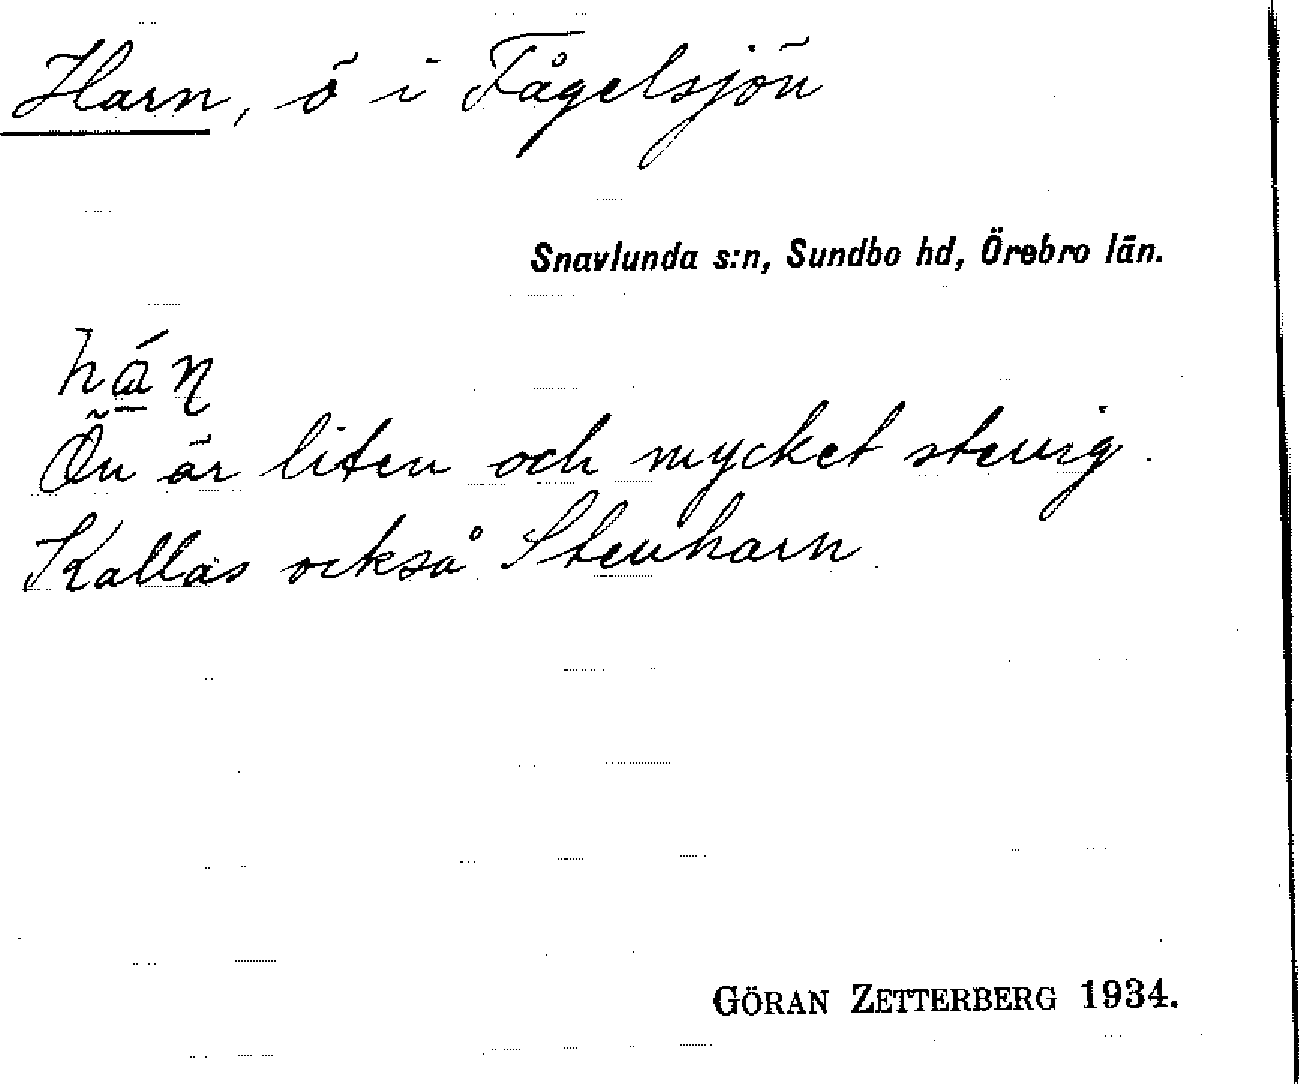 Harn, ö i Fågelsjön
Snavlunda s:n, Sundbo hd, Örebro län.
há̱ɳ
Ön är liten och mycket stenig.
Kallas också Stenharn.
GÖRAN ZETTERBERG 1934.